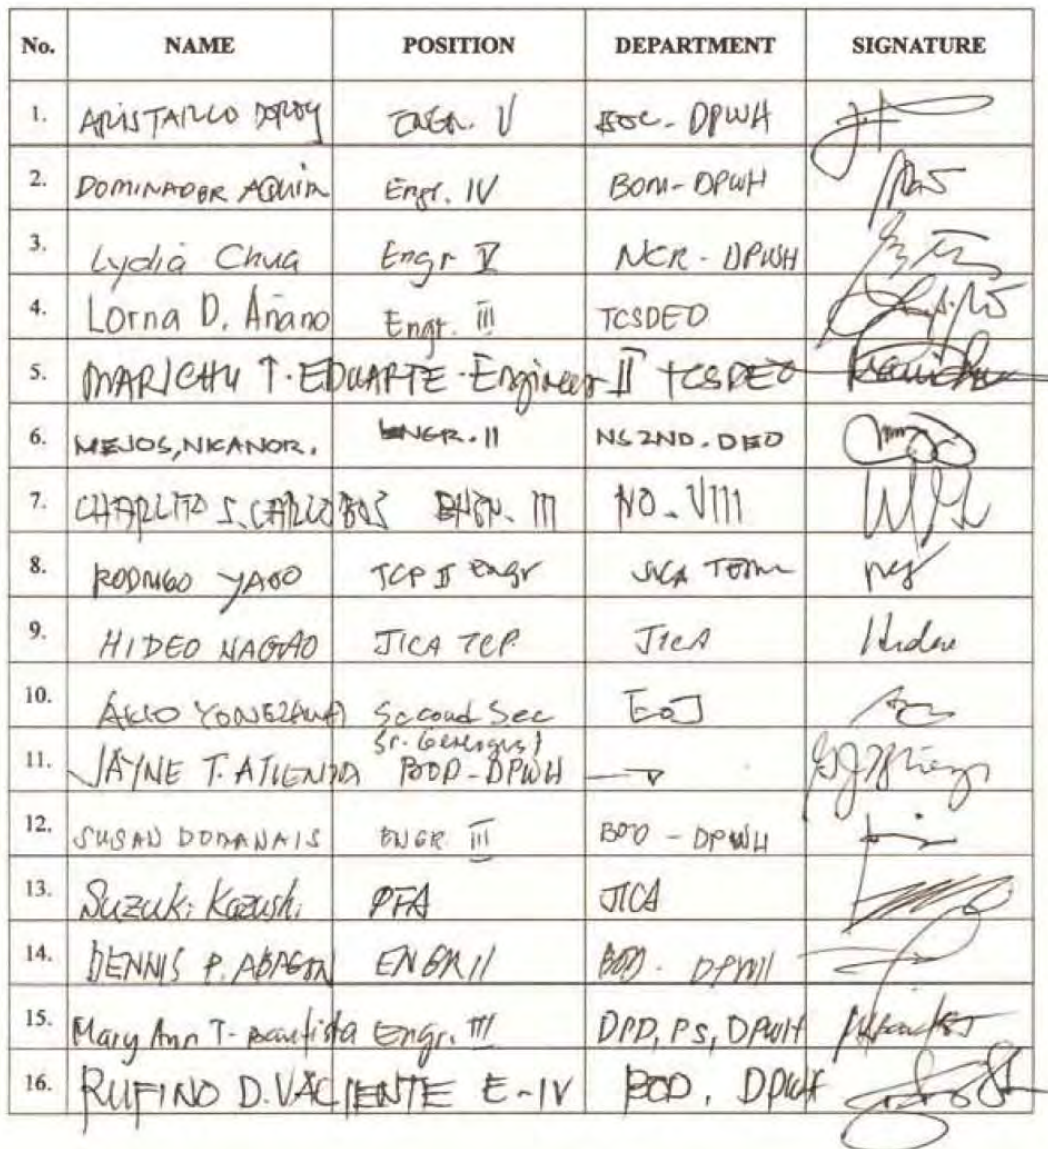 No. NAME POSITION DEPARTMENT SIGNATURE
1. ARISTARCO DOROY ENGR. V BOC - DPWH
2. DOMINADOR AQUINO Engr. IV BOM - DPWH
3. Lydia Chua Engr V NCR - DPWH
4. Lorna D. Añano Engr. III TCSDEO
5. MARICHU T. EDUARTE - Engineer II TCSDEO
6. MEJOS, NICANOR. ENGR. II NS 2ND. DEO
7. CHARLITO S. CARLOBOS ENGR. III RO. VIII
8. RODRIGO YAGO TCP II Engr JICA Team
9. HIDEO NAGAO JICA TCP. JICA
10. AKIO YONEZAWA Second Sec EoJ
11. JAYNE T. ATIENZA Sr. Geologist BOD - DPWH
12. SUSAN ENGR III BOD - DPWH
13. Suzuki Kazushi PFA JICA
14. DENNIS P. ENGR II BOD - DPWH
15. Mary Ann T. Bautista Engr. III DPD, PS, DPWH
16. RUFINO D. VACIENTE E-IV BOD, DPWH